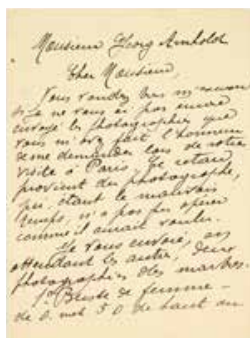 Monsieur Georg Arnhold
Cher Monsieur
Vous voudrez bien m'excuser
si je ne vous ai pas encore
envoyé les photographies que
vous m'avez fait l'honneur
de me demander lors de votre
visite à Paris. Le retard
provient du photographe,
qui, étant le mauvais
temps, n'a pas pu opérer
comme il aurait voulu.
Je vous envoie, en
attendant les autres, deux
photographies des marbres.
1° Buste de femme -
de 0. met 50 de haut